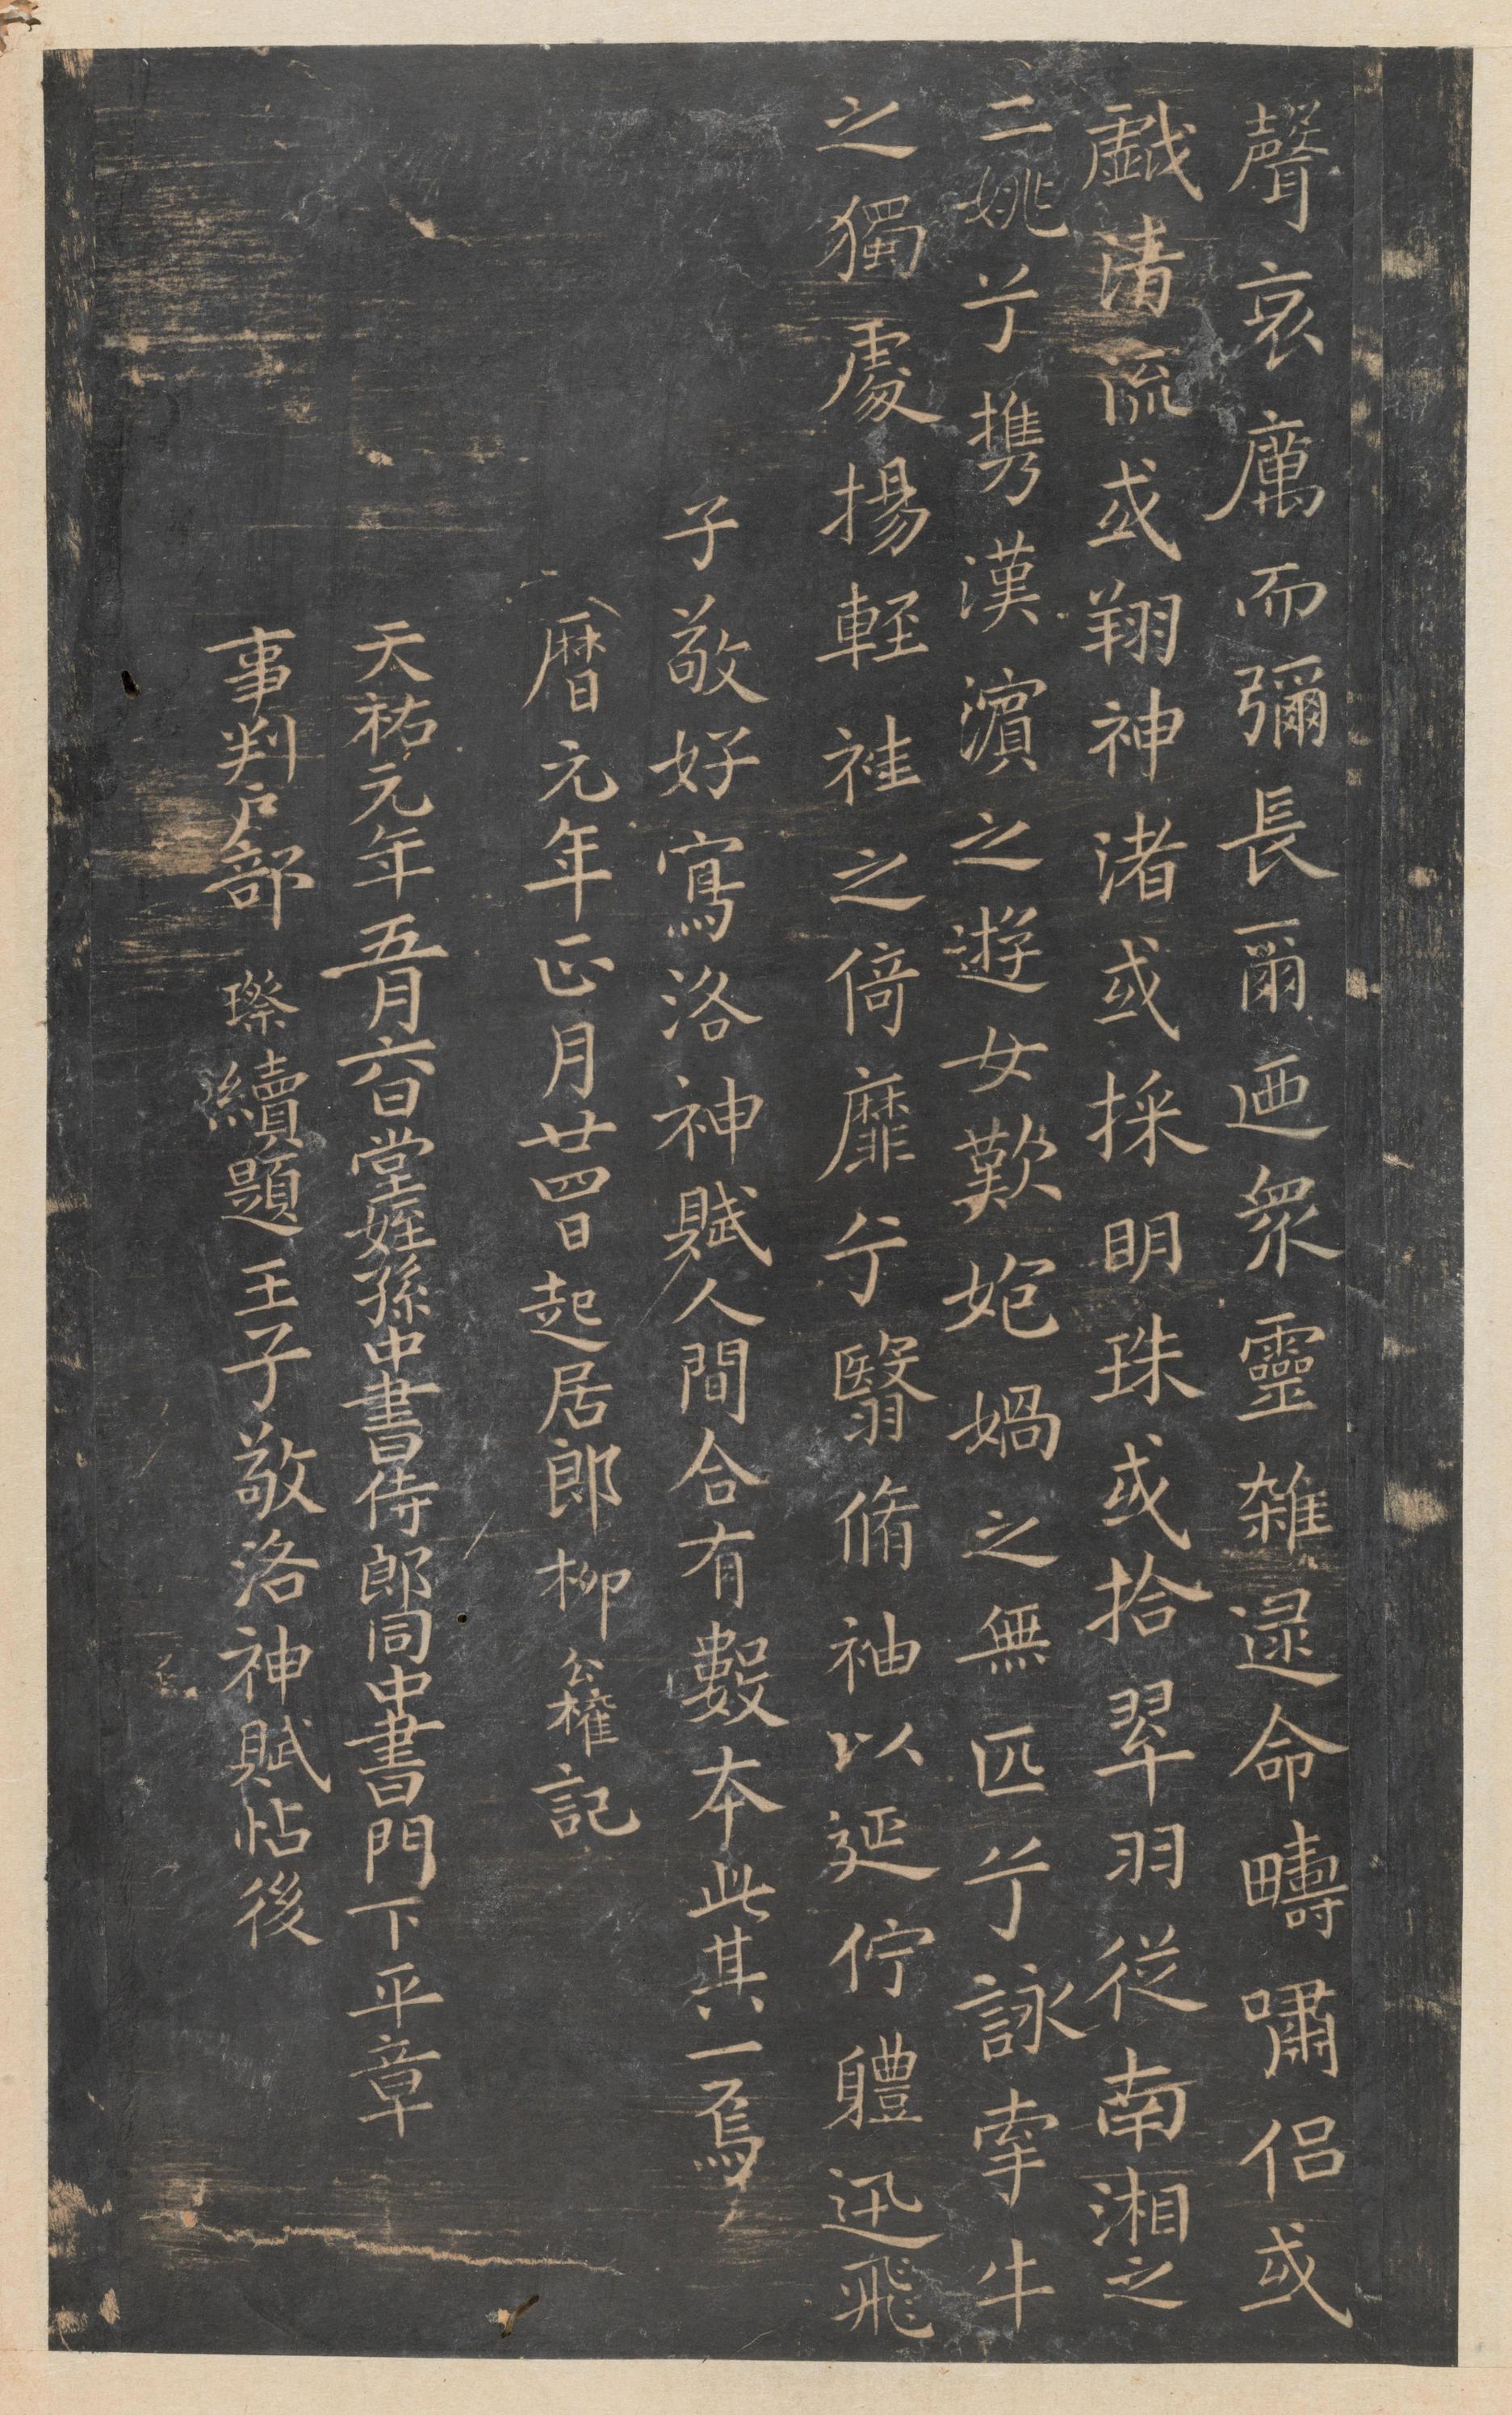 聲哀厲而彌長爾迺衆靈雜遝命疇嘯侣或
戯清流或翔神渚或採明珠或拾翠羽從南湘之
二姚兮携漢濱之遊女歎匏媧之無匹兮詠牽牛
之獨處揚輕袿之倚靡兮翳脩袖以延佇軆迅飛
子敬好寫洛神賦人間合有數本此其一焉
曆元年正月廿四日起居郎柳公權記
天祐元年五月六日堂姪孫中書侍郎同中書門下平章
事判戶部璨續題王子敬洛神賦帖後